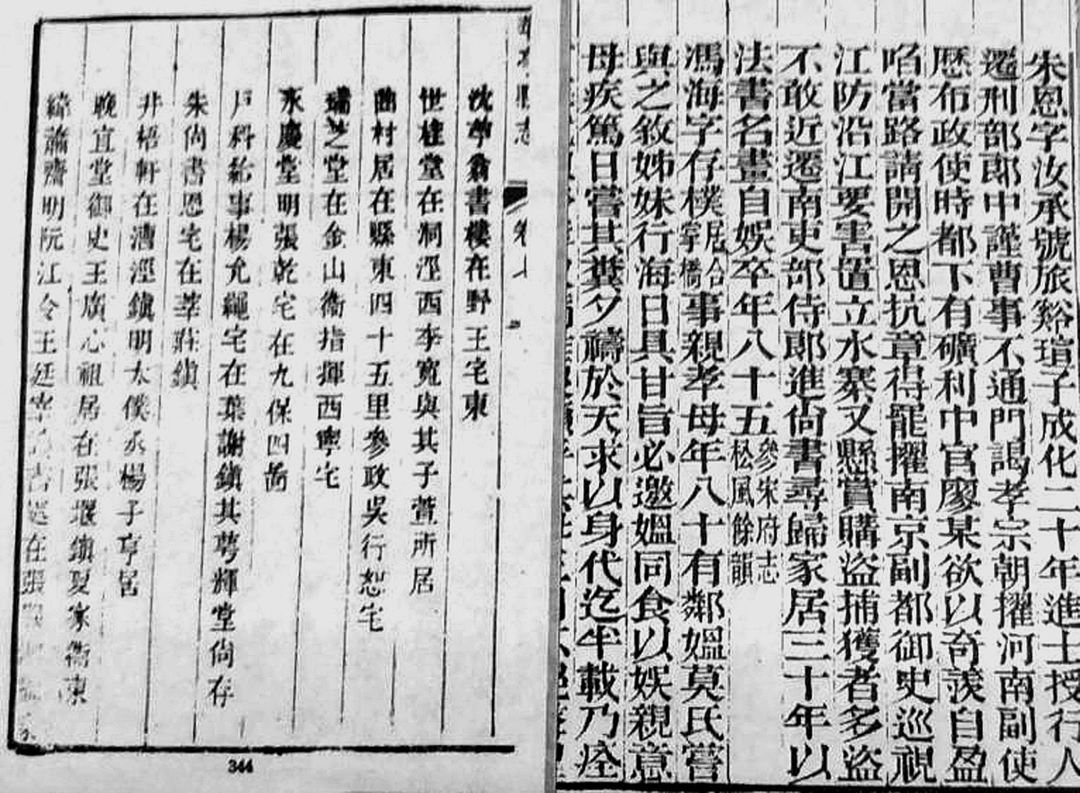 朱恩字汝承號旅谿瑄子成化二十年進士授行人
遷刑部郎中謹曹事不通門謁孝宗朝擢河南副使
歷布政使時都下有礦利中官廖某欲以奇羨自盈
啗當路請開之恩抗章得罷擢南京副都御史巡視
江防沿江要害置立水寨又懸賞購盜捕獲者多盜
不敢近遷南吏部侍郎進尚書尋歸家居三十年以
法書名畫自娛卒年八十五參宋府志松風餘韻
馮海字存樸居合掌橋事親孝母年八十有鄰媼莫氏嘗
與之敘姊妹行海日具甘旨必邀媼同食以娛親意
母疾篤日嘗其糞夕禱於天求以身代迄半載乃痊
縣志 卷
沈華翁書樓在野王宅東
世桂堂在洞涇西李寬與其子萱所居
曲村居在縣東四十五里參政吳行恕宅
瑞芝堂在金山衞指揮西寧宅
永慶堂明張乾宅在九保四啚
戶科給事楊允繩宅在葉謝鎮其萼輝堂尙存
朱尙書恩宅在莘莊鎮
井梧軒在漕涇鎮明太僕丞楊子亨居
晚宜堂御史王廣心祖居在張堰鎮夏家衖東
緯蕭齋明阮江令王廷宰 在張
344